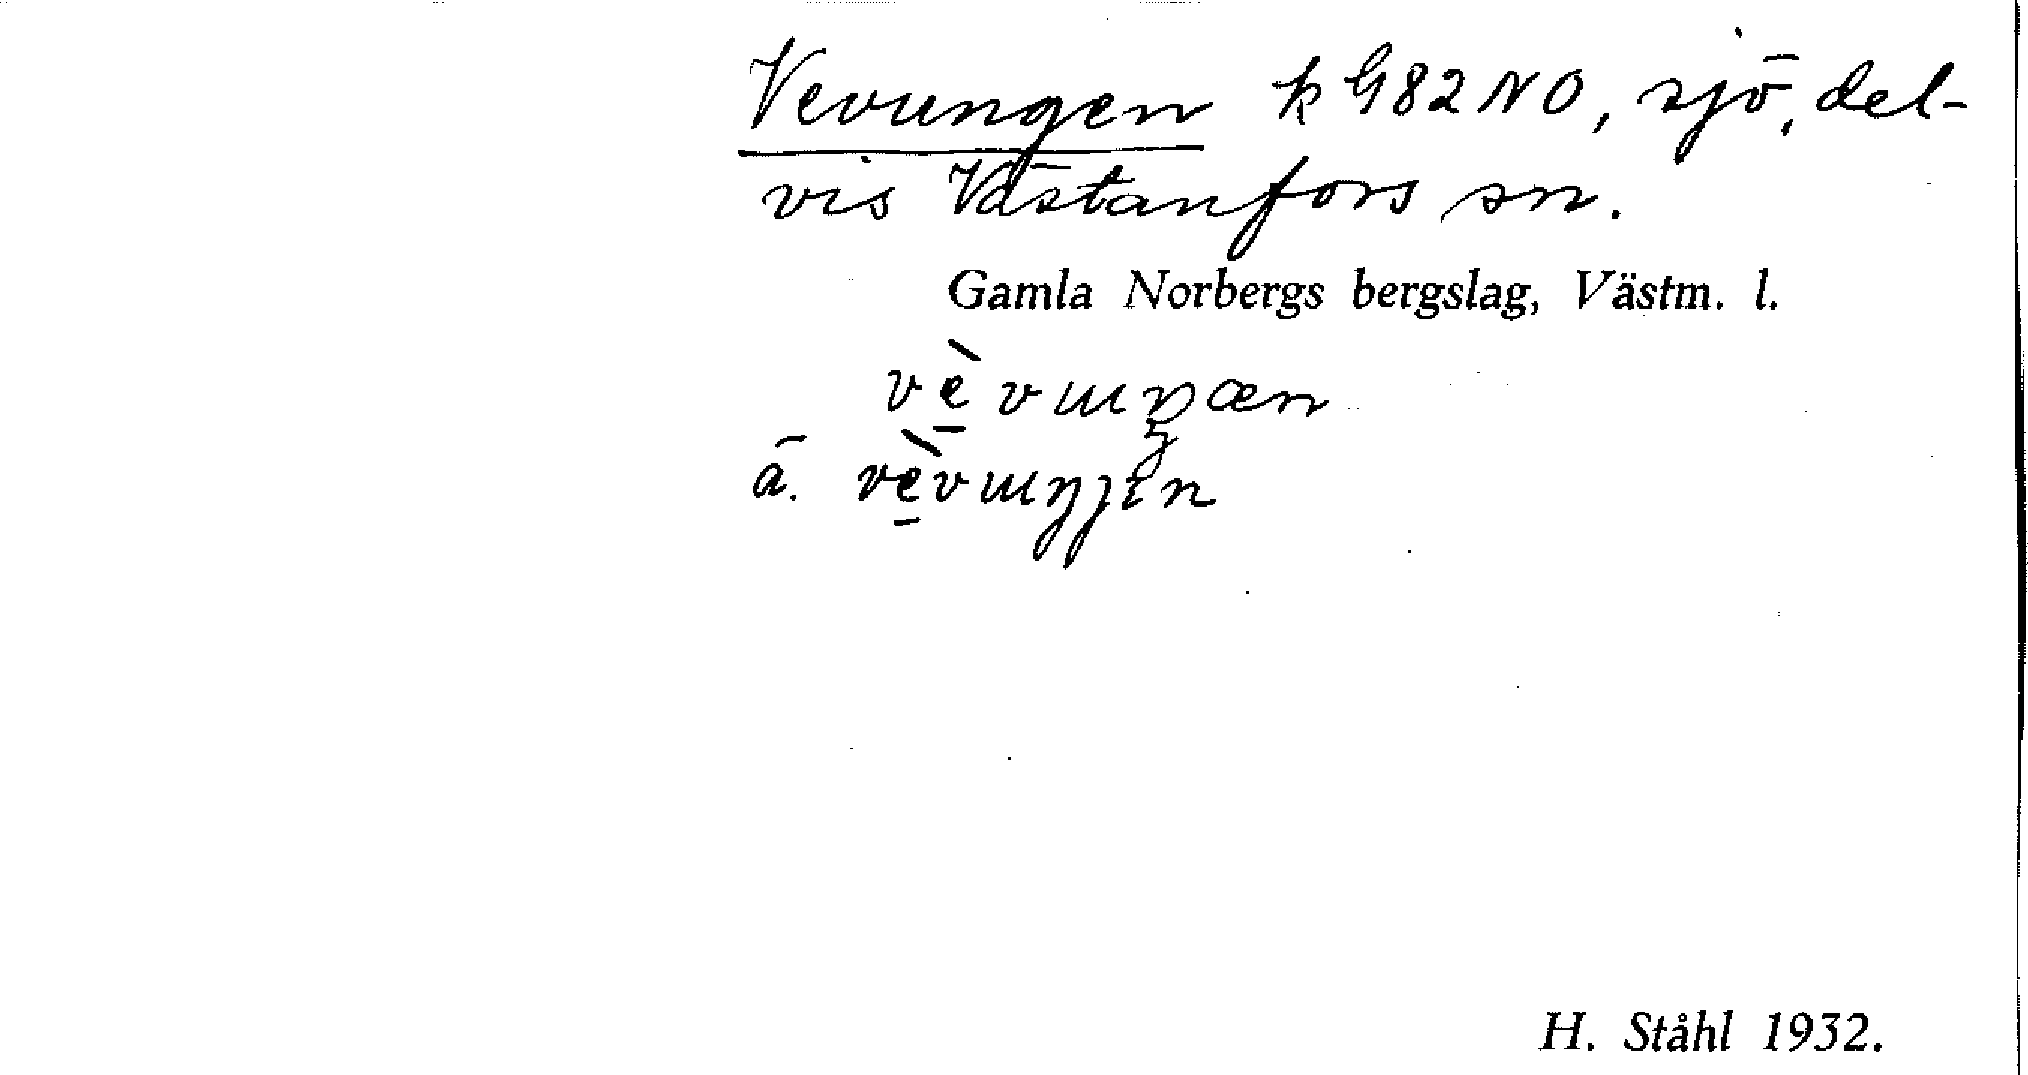 Vevungen k G82 NO, sjö, del-
vis Västanfors sn.
Gamla Norbergs bergslag, Västm. l.
ä.
H. Ståhl 1932.